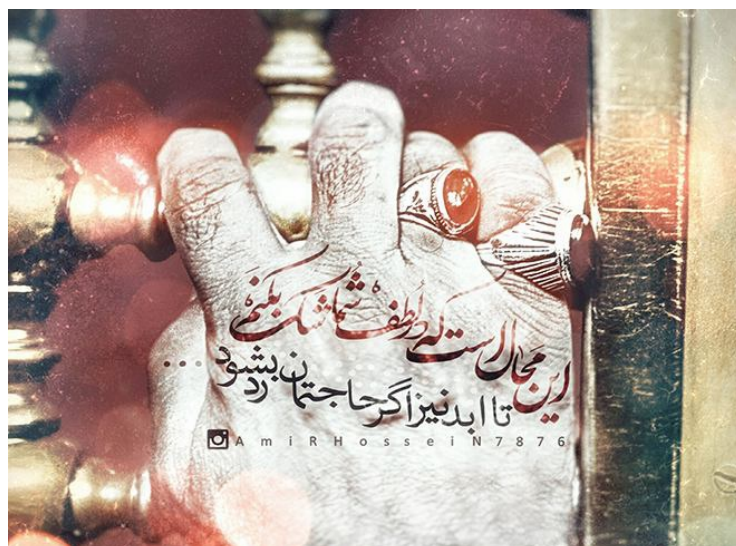 این محال است که در لطف شما شک بکنم
تا ابد نیز اگر حاجتمان رد بشود ...
AmiRHosseiN7876